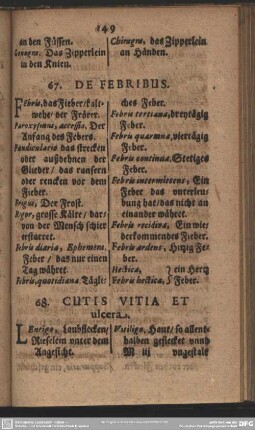 149
an den Füssen.
Gonagra. Das Zipperlein
in den Knien.
Chiragra, das Zipperlein
an Händen.
67. DE FEBRIBUS.
Febris, das Fieber/kalt-
wehe/ der Fröрer.
Paroxysmus, accessio, Der
Anfang des Febers.
Pandiculatio das strecken
oder außdehnen der
Glieder/ das ransern
oder rencken vor dem
Fieber.
Frigus, Der Frost.
Rigor, grosse Kälte/ dar-
von der Mensch schier
erstarret.
Febris diaria, Ephemera.
Feber/ das nur einen
Tag währet.
Febris quotidiana Tägli-
ches Feber.
Febris tertiana, dreytägig
Feber.
Febris quartana, viertägig
Feber.
Febris continua, Stetiges
Feber.
Febris intermittens, Ein
Feber das unterlei-
bung hat/ das nicht an
einander währet.
Febris recidiva, Ein wie-
derkommendes Fieber.
Febris ardens, Hitzig Fe-
ber.
Hectica, } ein Hertz
Febris hectica, } Feber.
68. CUTIS VITIA ET
ulcera.
Lentigo, Laubflecken/
Rieselein unter dem
Angesicht.
Vitiligo, Haut/ so allent-
halben geflecket unnd
M iij ungestale